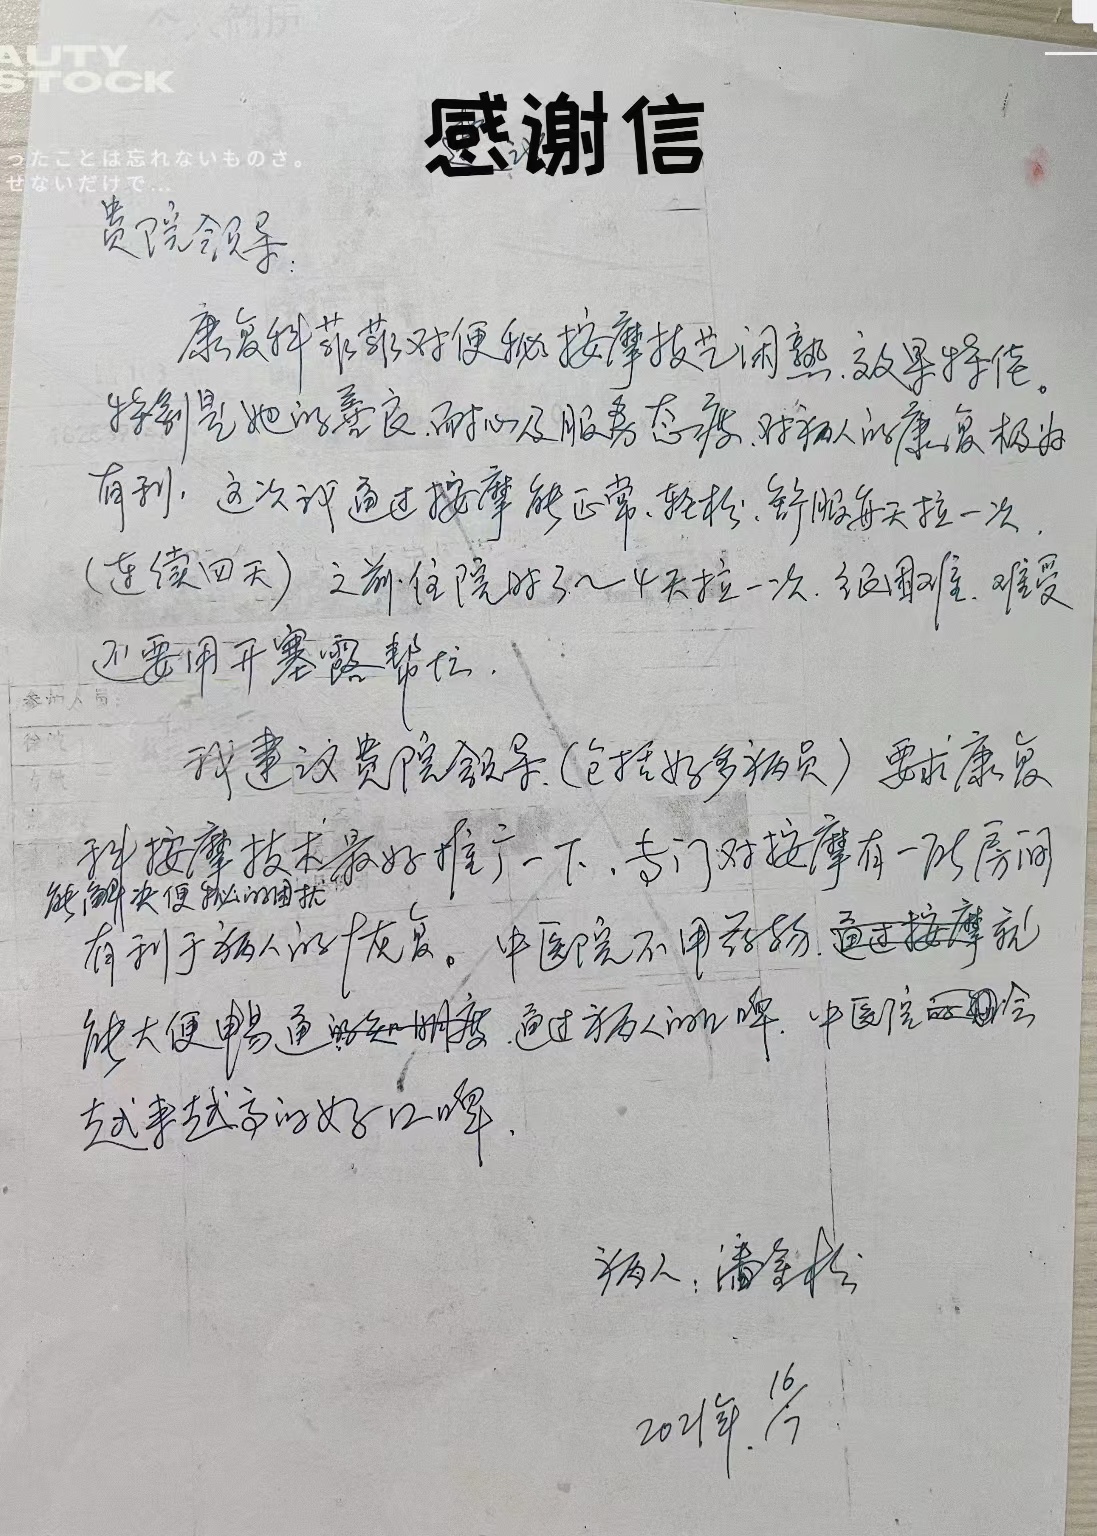 AUTY
STOCK
感谢信
ったことは忘れないものさ。
せないだけで...
贵院领导:
康复科菲菲对便秘按摩技艺闲熟、效果特佳。
特别是她的善良、耐心及服务态度、对病人的康复极为
有利，这次我通过按摩能正常、轻松、舒服每天拉一次.
(连续四天) 之前住院时3～4天拉一次、很困难、难受
还要用开塞露帮忙.
我建议贵院领导、(包括好多病员) 要求康复
科按摩技术最好推广一下、专门对按摩有一所房间
能解决便秘的困扰
有利于病人的恢复。中医院不用药物、通过按摩就
能大便畅通 通过病人的口啤、中医院会
越来越高的好口啤.
参加人员:
病人: 潘金松
2021年. 16/7